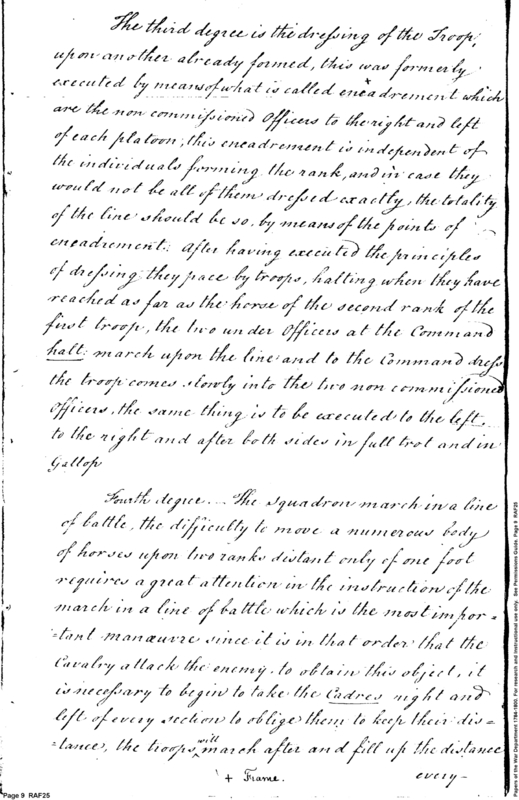 The third degree is the dressing of the Troop,
upon another already formed, this was formerly
executed by means of what is called eneadrement which
are the non commissioned Officers to the right and left
of each platoon; this eneadrement is independent of
the individuals forming the rank, and in case they
would not be all of them dressed exactly, the totality
of the line should be so, by means of the points of
eneadrement: After having executed the principles
of dressing they pace by troops, halting when they have
reached as far as the horse of the second rank of the
first troop, the two under Officers at the Command
halt: march upon the line and to the Command dress
the troop comes slowly into the two non commissioned
Officers, the same thing is to be executed to the left,
to the right and after both sides in full trot and in
Gallop
Fourth degree... The squadron march in a line
of battle, the difficulty to move a numerous body
of horses upon two ranks distant only of one foot
requires a great attention in the instruction of the
march in a line of battle which is the most impor-
=tant manœuvre since it is in that order that the
Cavalry attack the enemy. to obtain this object, it
is necessary to begin to take the Cadres right and
left of every section to oblige them to keep their dis-
=tance, the troops will march after and fill up the distance
+ Frame.
every-
Page 9 RAF25
Papers of the War Department 1784-1800. For research and instructional use only. See Permissions Guide. Page 9 RAF25